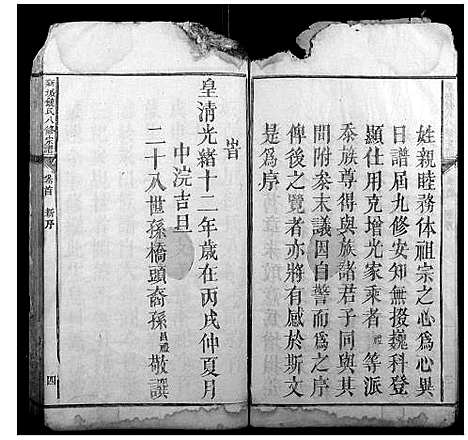 姓親睦務体祖宗之心爲心異
日譜屆九修安知無掇巍科登
顯仕用克增光家乘者禮等派
忝族尊得與族諸君子同與其
間附參末議因自警而爲之序
俾後之覽者亦將有感於斯文
是爲序
旹
皇清光緒十二年歲在丙戌仲夏月
中浣吉旦
二十八世孫橋頭裔孫昌禮敬譔
氏八修宗譜
卷首
新序
四